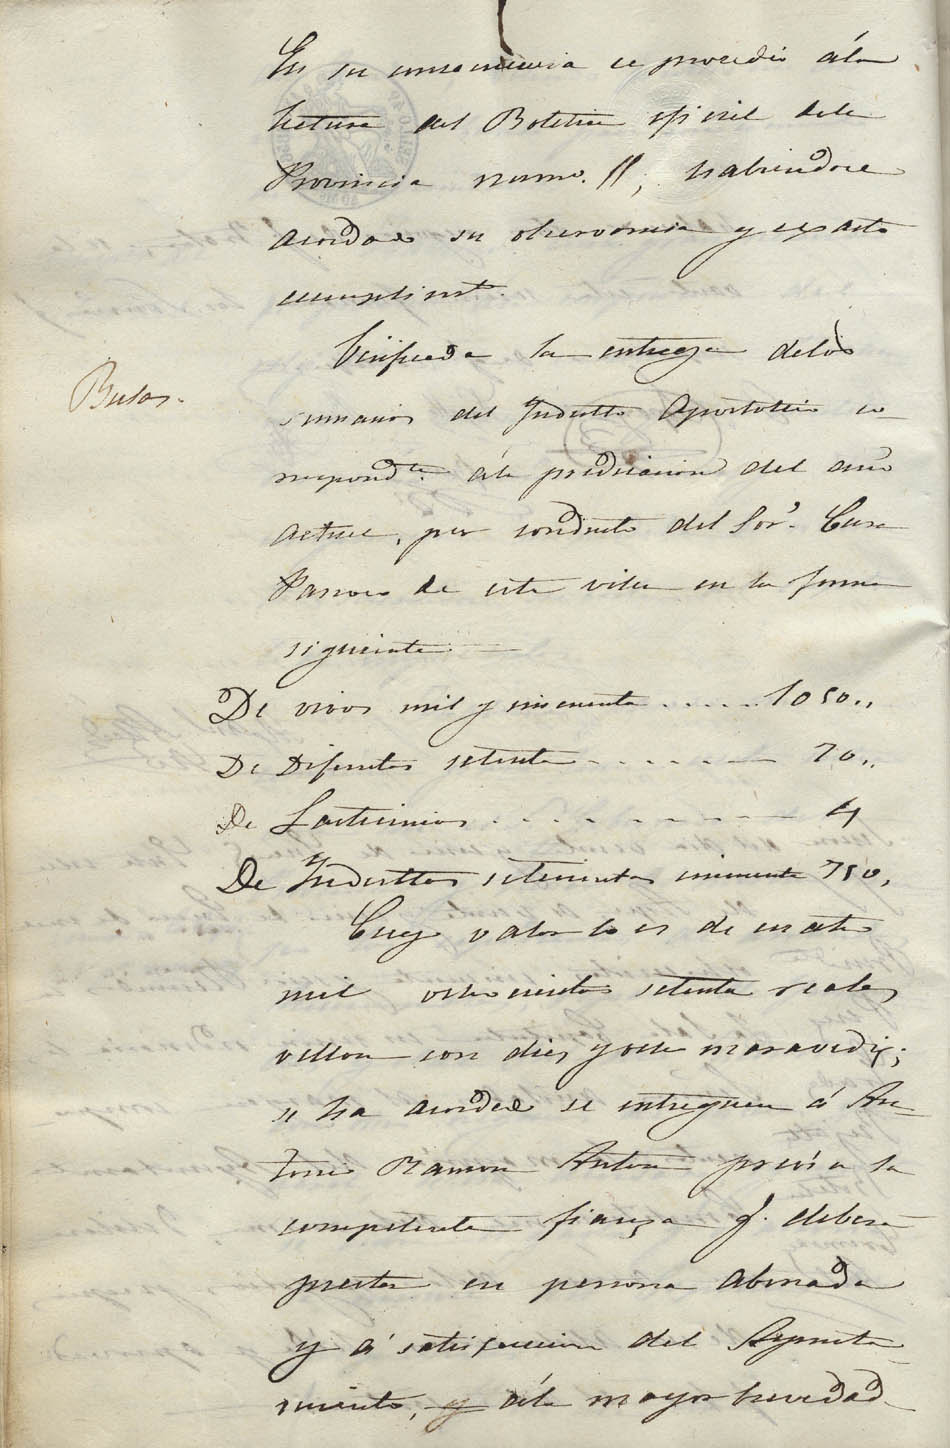 En su consecuencia se procedió ála
lectura del Boletin oficial dela
Provincia num. 11, habiendose
acordado su observancia y exacto
cumplimto.
Verificada la entrega delos
Bulas.
sumarios del Yndulto Apostolico co
rrespondte. ála predicacion del año
actual, por conducto del Sor. Cura
Parroco de esta villa en la forma
siguiente.
De vivos mil y cincuenta ..... 1050.,
De Difuntos setenta ........ 70.,
De Lacticinios ......... 4
De Yndultos setecientos cincuenta 750,
Cuyo valor lo es de cuatro
mil ochocientos setenta reales
vellon con diez y ocho maravedis;
se ha acordado se entreguen á An
tonio Ramon Anton previa la
competente fianza q. debera
prestar en persona abonada
y á satisfaccion del Ayunta
miento, y ála mayor brevedad